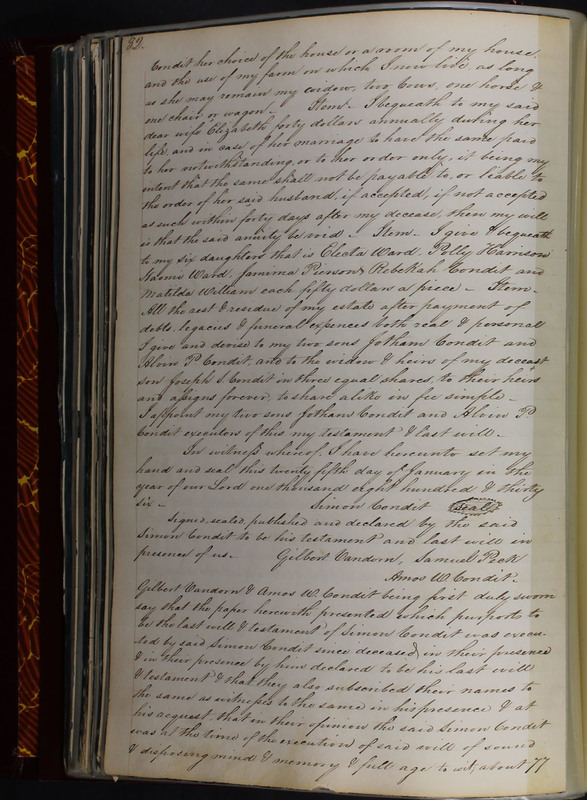 82.
Condit her choice of the house or a room of my house,
and the use of my farm on which I now live, as long
as she may remain my widow, two Cows, one horse &
one chair or wagon. Item. I bequeath to my said
dear wife Elizabeth forty dollars annually during her
life, and in case of her marriage to have the same paid
to her notwithstanding, or to her order only, it being my
intent that the same shall not be payable to, or liable to
the order of her said husband, if accepted, if not accepted
as such within forty days after my decease, then my will
is that the said anuity be void - Item - I give & bequeath
to my six daughters that is Electa Ward, Polly Harrison
Naomi Ward, Jamima Pierson, Rebekah Condit and
Matilda William each fifty dollars a piece - Item -
All the rest & residue of my estate after payment of
debts, legacies & funeral expences both real & personal
I give and devise to my two sons Jotham Condit and
Alvin P Condit, and to the widow & heirs of my deceast
son Joseph S. Condit in three equal shares, to their heirs
and assigns forever, to share alike in fee simple -
I appoint my two sons Jotham Condit and Alvin P
Condit executors of this my testament & last will -
In witness whereof, I have hereunto set my
hand and seal this twenty fifth day of January in the
year of our Lord one thousand eight hundred & thirty
six - Simon Condit seal
Signed, sealed, published and declared by the said
Simon Condit to be his testament and last will in
presence of us - Gilbert Vandorn, Samuel Peck
Amos W. Condit.
Gilbert Vandorn & Amos W. Condit being first duly sworn
say that the paper herewith presented which purports to
be the last will & testament of Simon Condit was execu-
ted by said Simon Condit since deceased, in their presence
& in their presence by him declared to be his last will
& testament & that they also subscribed their names to
the same as witnesses to the same in his presence & at
his request, that in their opinion the said Simon Condit
was at the time of the execution of said will of sound
& disposing mind & memory & full age to wit, about 77